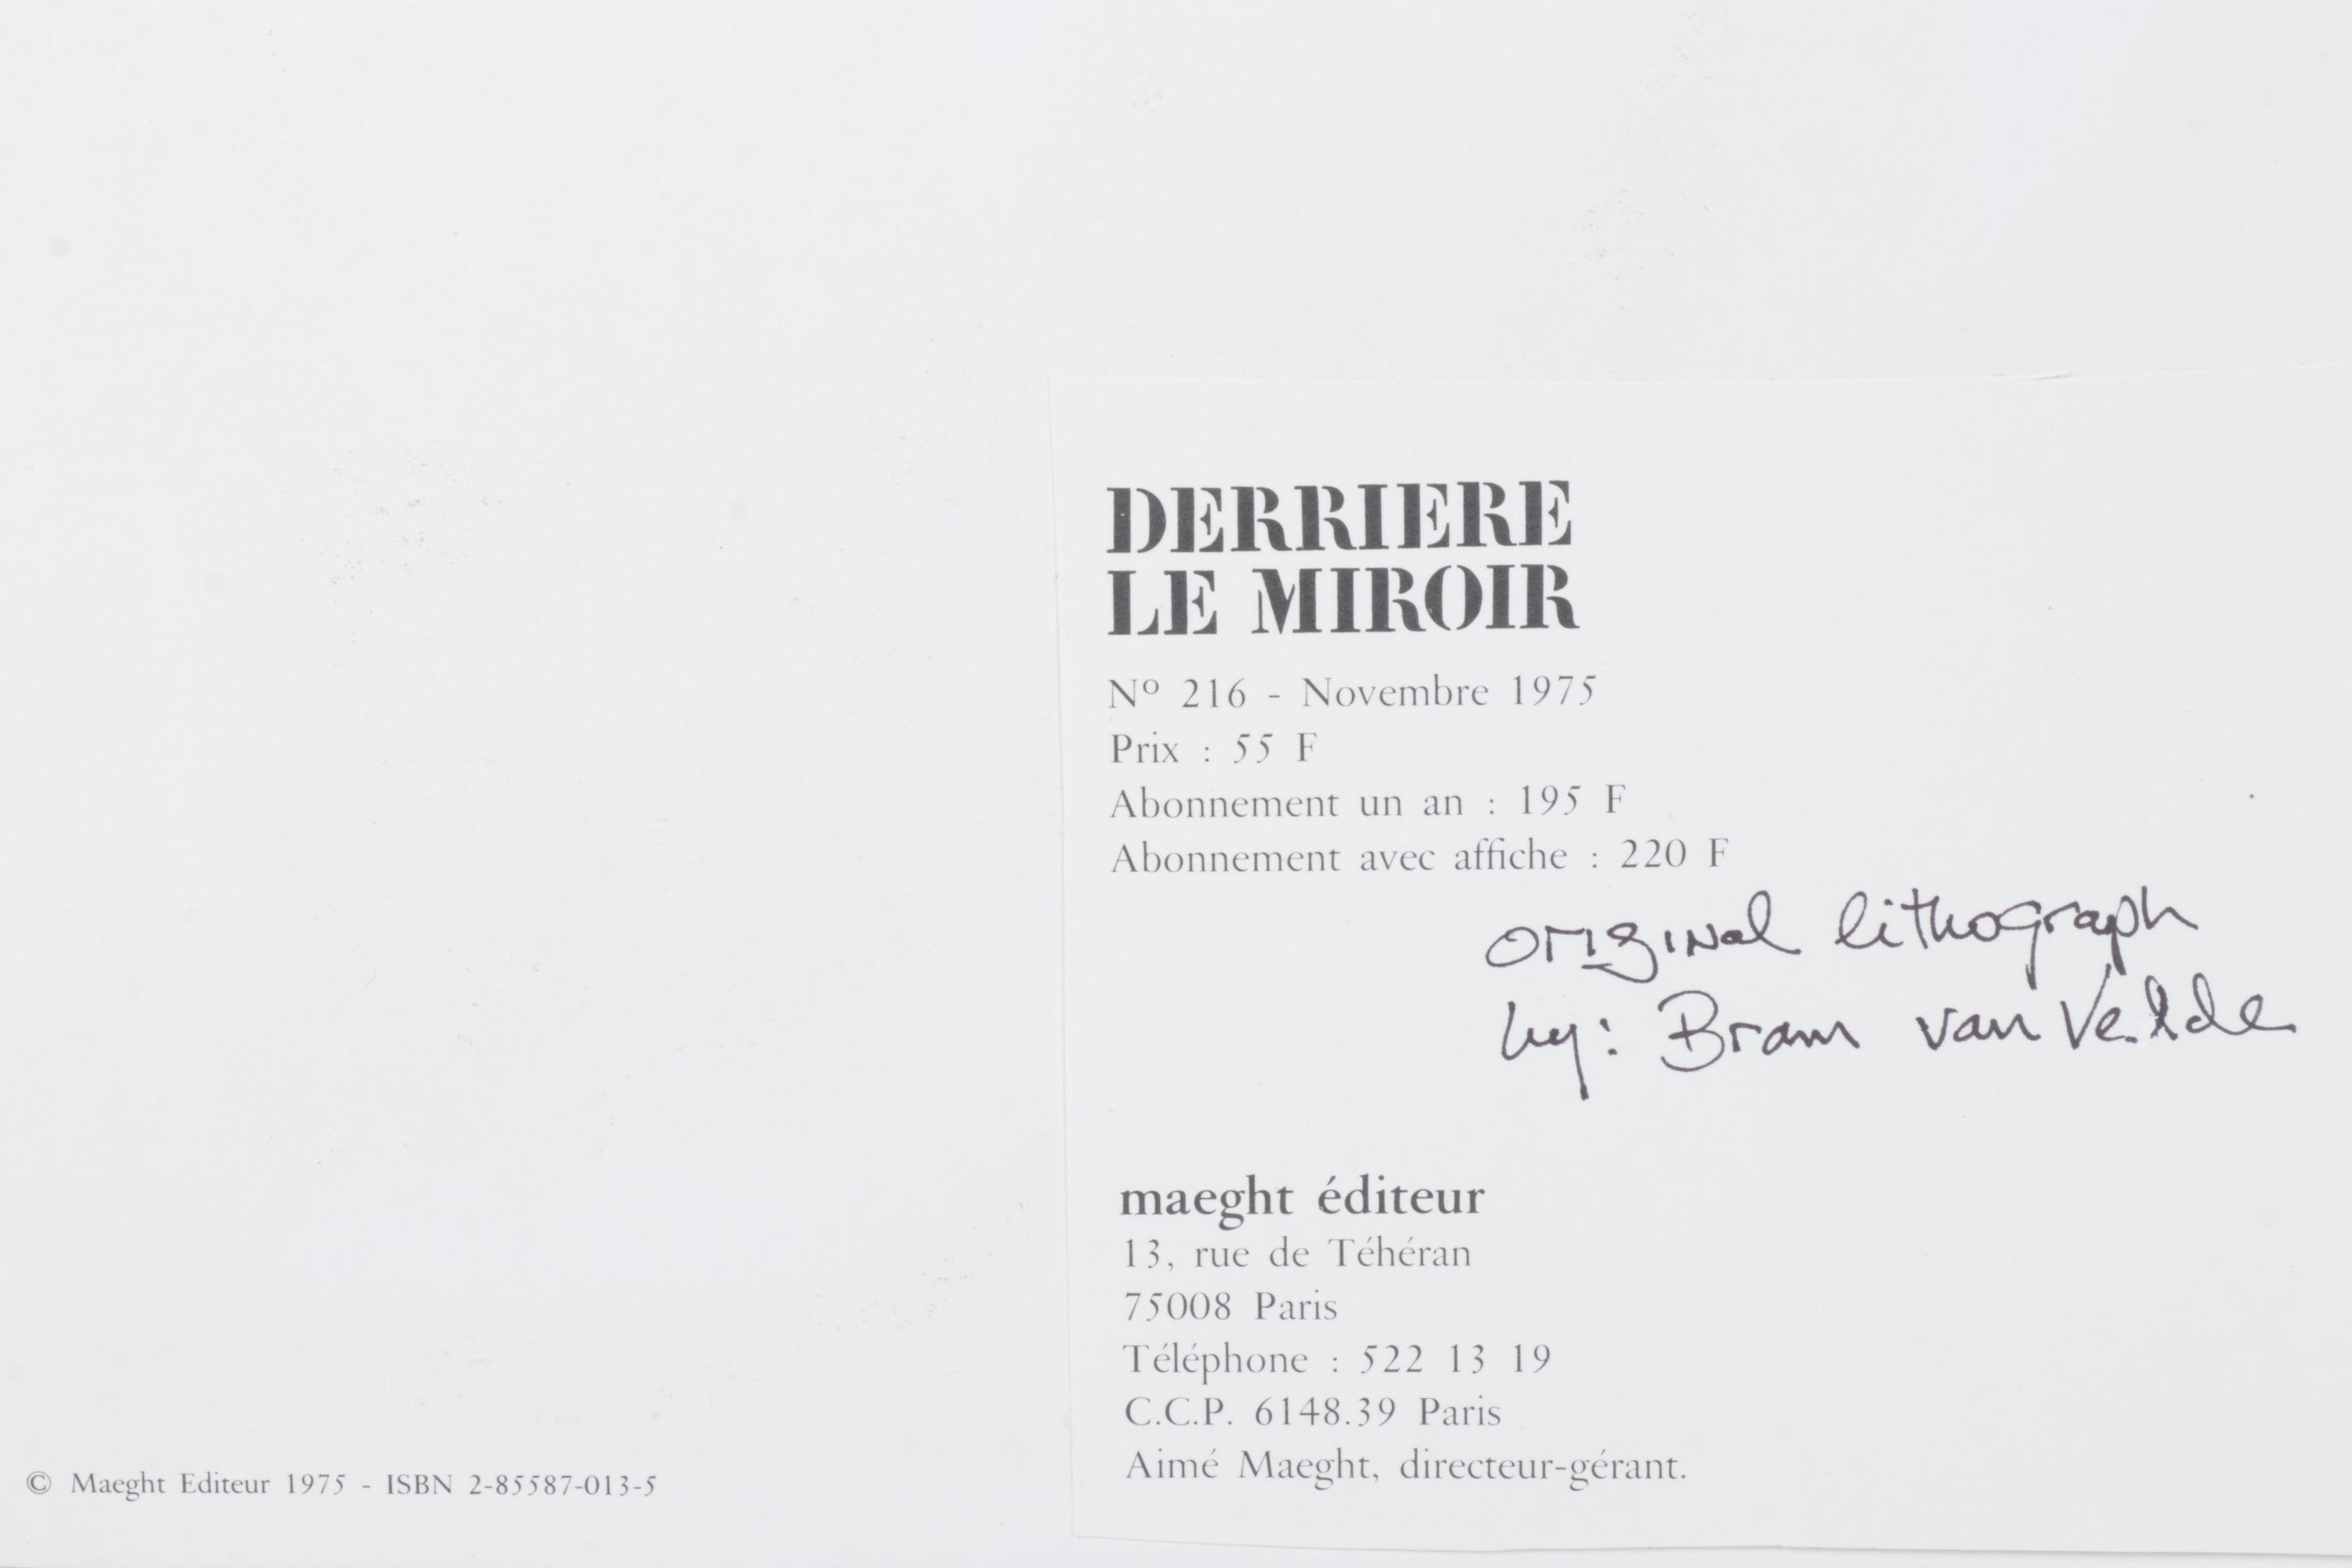 DERRIERE
LE MIROIR
Nº 216 - Novembre 1975
Prix : 55 F
Abonnement un an : 195 F
Abonnement avec affiche : 220 F
original lithograph
by: Bram van Velde
maeght éditeur
13, rue de Téhéran
75008 Paris
Téléphone : 522 13 19
C.C.P. 6148.39 Paris
Aimé Maeght, directeur-gérant.
© Maeght Editeur 1975 - ISBN 2-85587-013-5